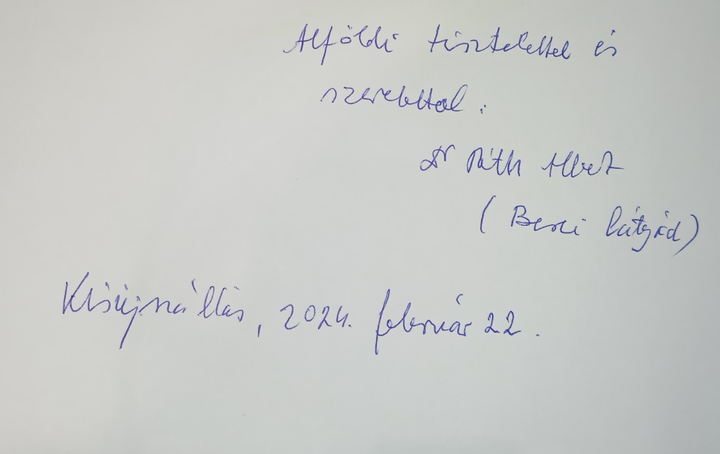 Alföldi tisztelettel és
szeretettel.
Dr Ráth Albert
(Berei bátyád)
Kisújszállás, 2024. február 22.